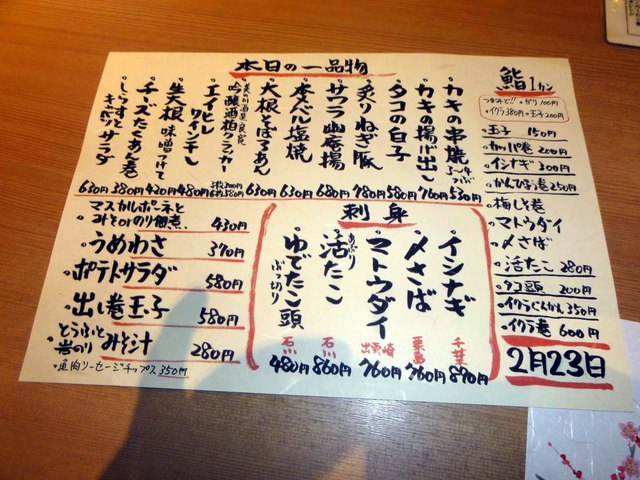 本日の一品物
・カキの串焼 3〜4つぶ 530円
・カキの揚げ出し 760円
・タコの白子 580円
・炙りねぎ豚 780円
・サワラ幽庵揚 680円
・本メバル塩焼 630円
・大根そぼろあん 630円
吟醸酒粕クラッカー 3枚300円 6枚580円
・エイヒレワインむし 480円
・生大根味噌つけて 420円
・チーズたくあん巻 380円
・しらすとキャベツサラダ 630円
マスカルポーネと
みそorのり佃煮、 430円
・うめわさ 370円
・ポテトサラダ 580円
・出し巻玉子 580円
とうふと岩のりみそ汁 280円
・魚肉ソーセージチップス 350円
刺身
イシナギ 千葉 870円
〆さば 粟島 760円
マトウダイ 出雲崎 760円
あぶり活たこ 石川 860円
ゆでたこ頭 ぶつ切り 石川 480円
鮨 1カン
つまみで!! ・ガリ100円
・イクラ380円 ・玉子200円
・玉子 150円
・かっぱ巻 200円
・イシナギ 300円
・かんぴょう巻 250円
・梅しそ巻
・マトウダイ
・〆さば
・活たこ 280円
・タコ頭 200円
・イクラぐんかん 350円
・イクラ巻 600円
2月23日